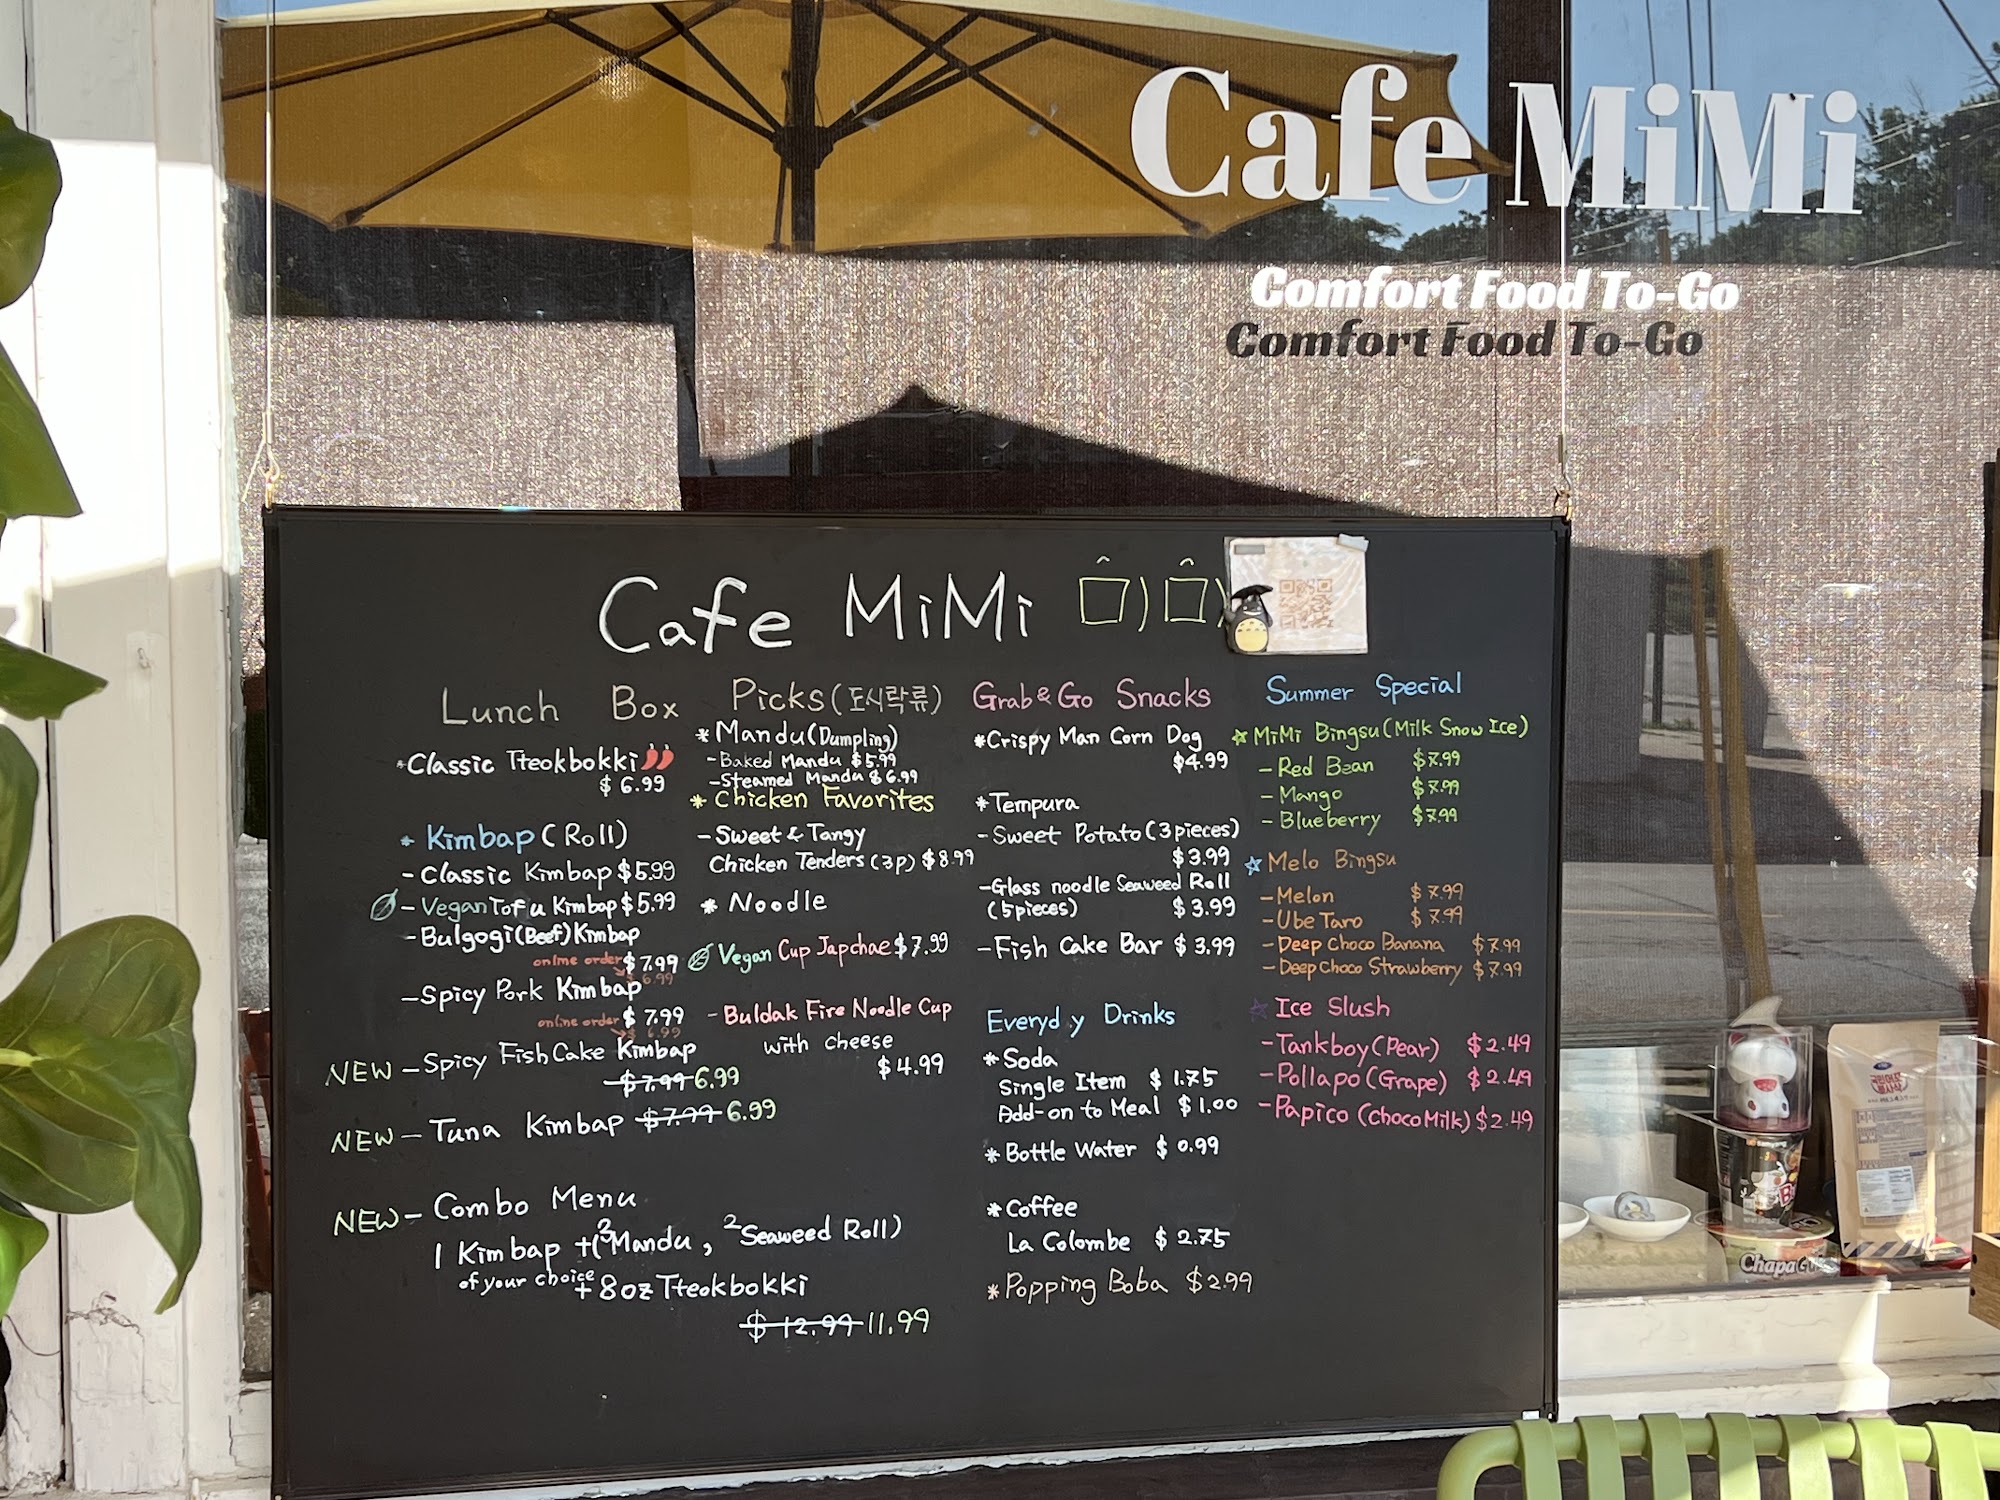 Cafe MiMi
Comfort Food To-Go
Comfort Food To-Go
Cafe MiMi
Lunch Box Picks (도시락류)
*Classic Tteokbokki
$6.99
* Kimbap (Roll)
- Classic Kimbap $5.99
- Vegan Tofu Kimbap $5.99
- Bulgogi (Beef) Kimbap
online order $7.99
$6.99
- Spicy Pork Kimbap
online order $7.99
$6.99
NEW - Spicy Fish Cake Kimbap
$7.99 6.99
NEW - Tuna Kimbap $7.99 6.99
NEW - Combo Menu
1 Kimbap + (3 Mandu, 2 Seaweed Roll)
of your choice + 8oz Tteokbokki
$12.99 11.99
* Mandu (Dumpling)
- Baked Mandu $5.99
- Steamed Mandu $6.99
* Chicken Favorites
- Sweet & Tangy
Chicken Tenders (3p) $8.99
* Noodle
Vegan Cup Japchae $7.99
- Buldak Fire Noodle Cup
with cheese
$4.99
Grab & Go Snacks
*Crispy Man Corn Dog
$4.99
*Tempura
- Sweet Potato (3 pieces)
$3.99
- Glass noodle Seaweed Roll
(5 pieces) $3.99
- Fish Cake Bar $3.99
Everyd y Drinks
* Soda
Single Item $1.75
Add-on to Meal $1.00
* Bottle Water $0.99
* Coffee
La Colombe $2.75
* Popping Boba $2.99
Summer Special
MiMi Bingsu (Milk Snow Ice)
- Red Bean $7.99
- Mango $7.99
- Blueberry $7.99
Melo Bingsu
- Melon $7.99
- Ube Taro $7.99
- Deep Choco Banana $7.99
- Deep Choco Strawberry $7.99
Ice Slush
- Tankboy (Pear) $2.49
- Pollapo (Grape) $2.49
- Papico (Choco Milk) $2.49